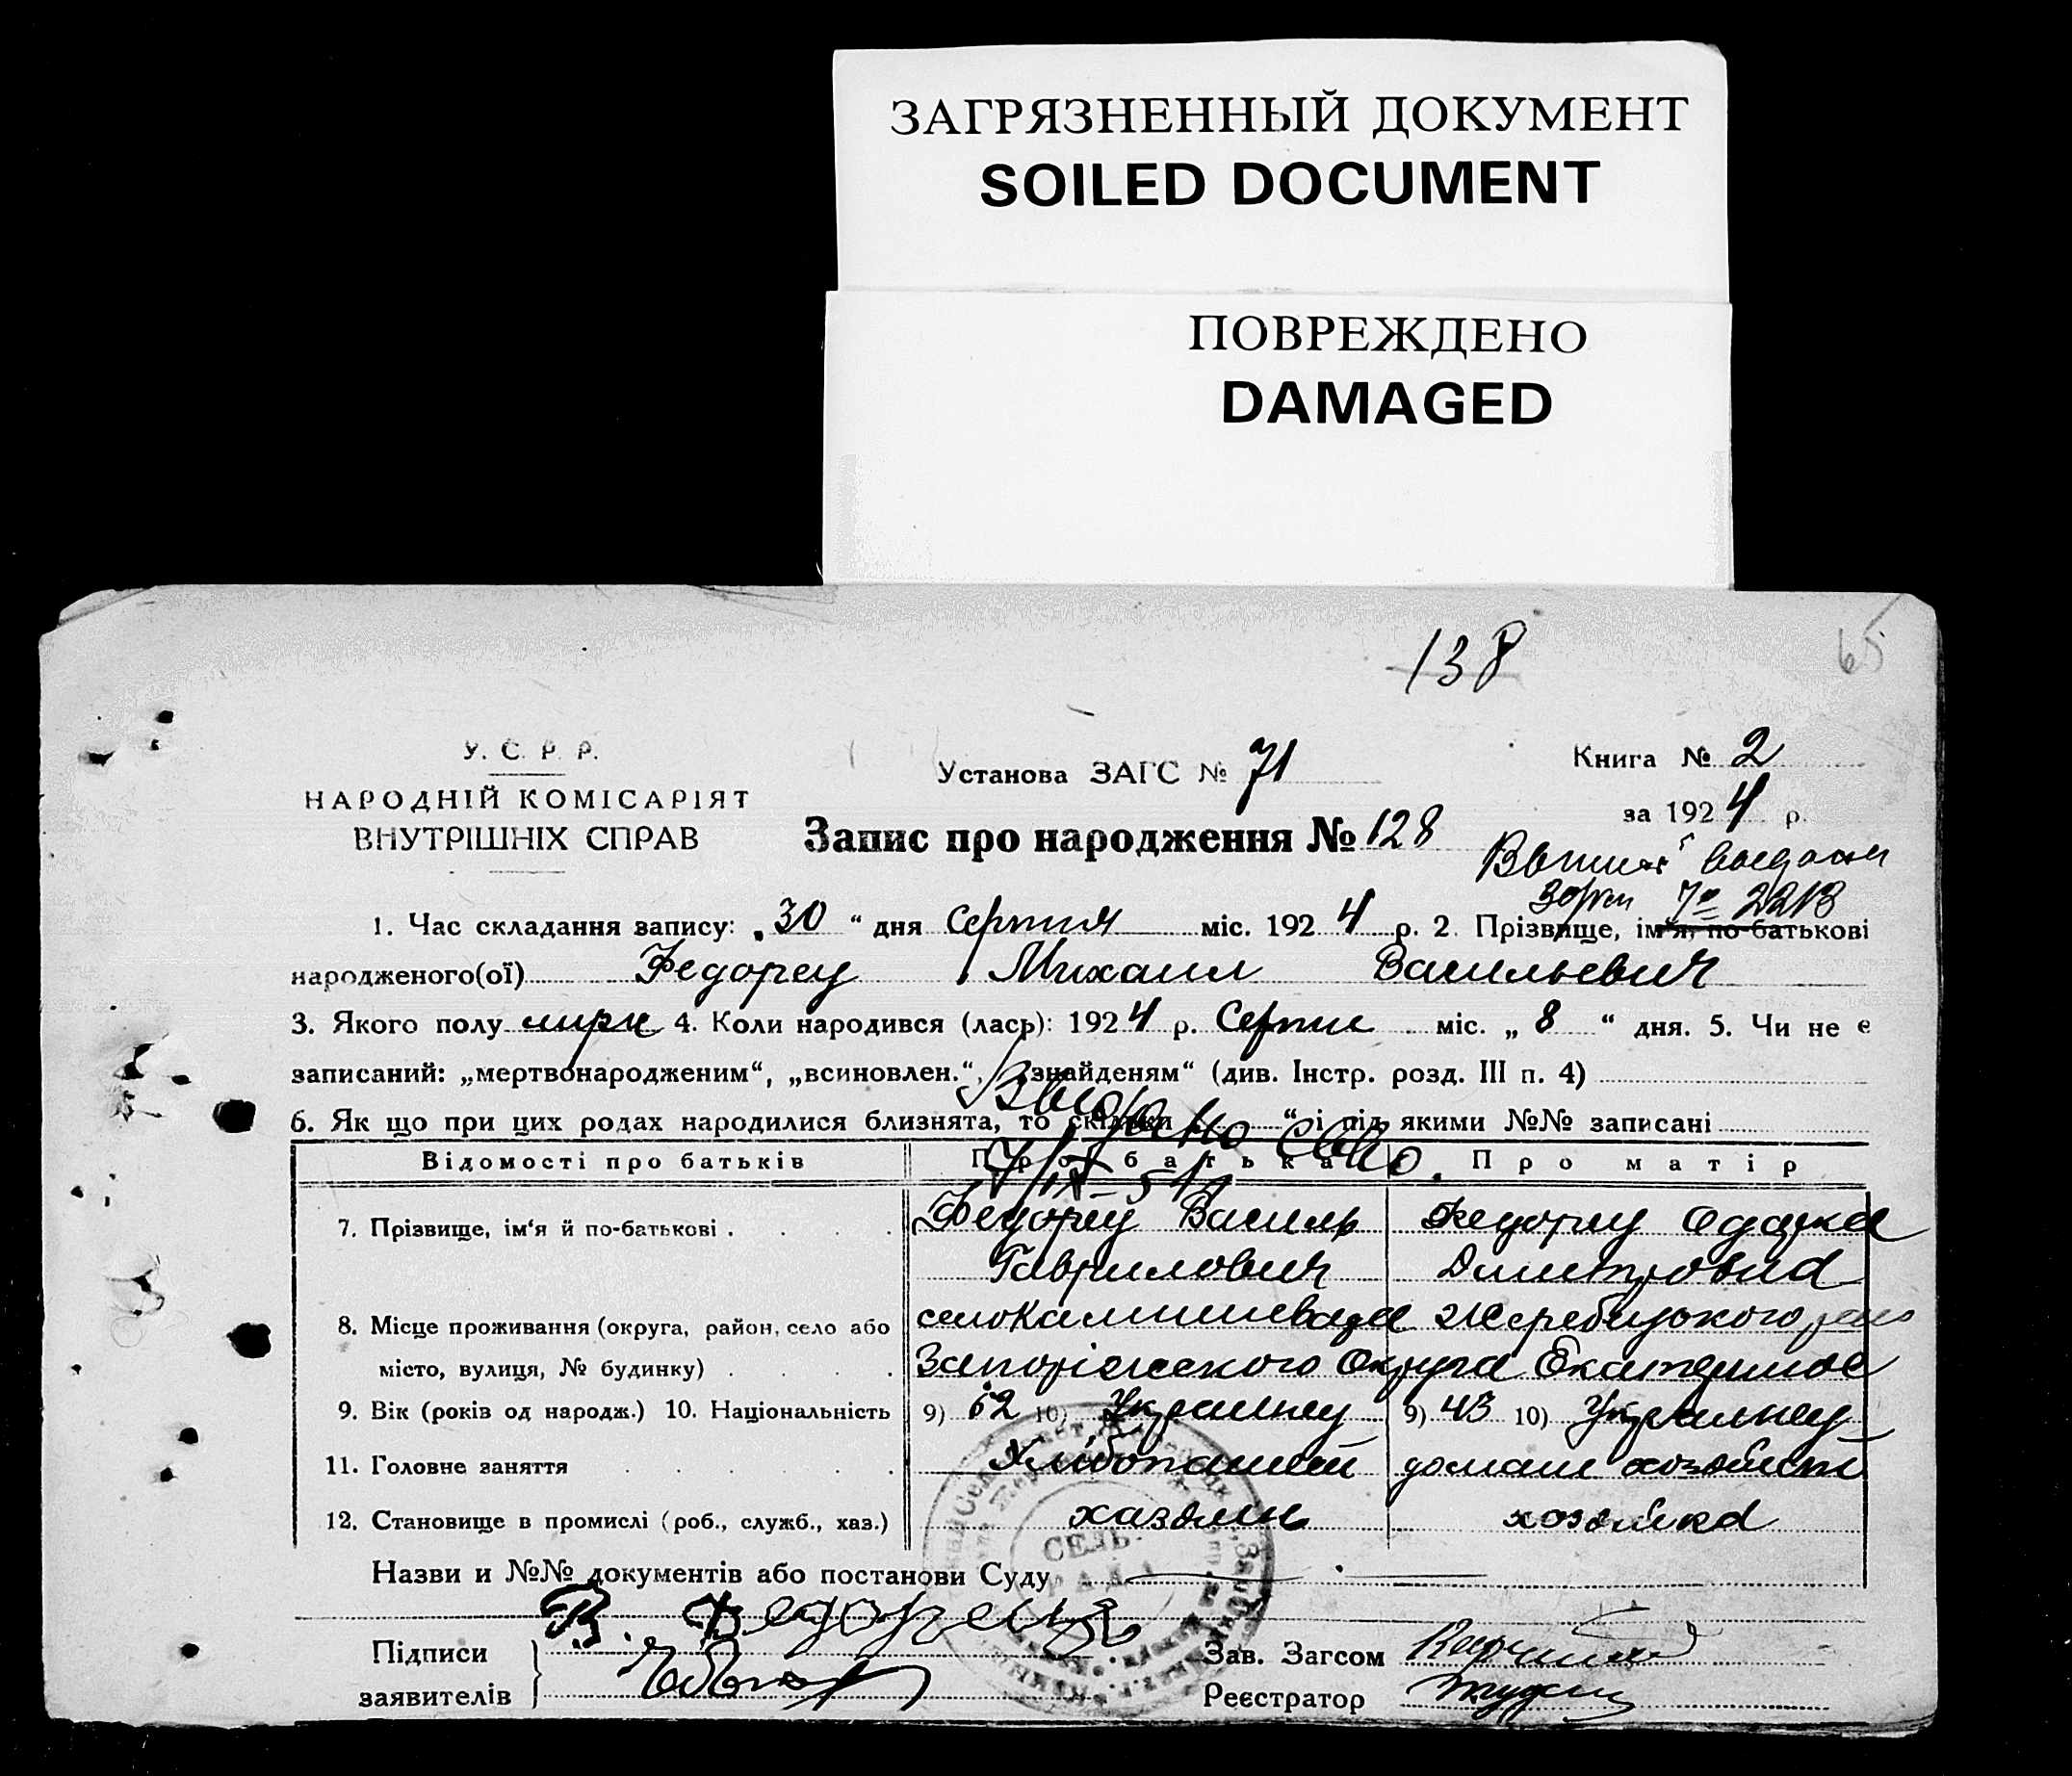 ЗАГРЯЗНЕННЫЙ ДОКУМЕНТ
SOILED DOCUMENT
ПОВРЕЖДЕНО
DAMAGED
138
65
У. С. Р. Р.
НАРОДНІЙ КОМІСАРІЯТ
ВНУТРІШНІХ СПРАВ
Установа ЗАГС № 71
Книга № 2
за 1924 р.
Запис про народження № 128
1. Час складання запису: „30“ дня Серпня міс. 1924 р. 2. Прізвище, ім'я, по-батькові
народженого(ої) Федорец Михаил Васильевич
3. Якого полу 4. Коли народився (лась): 1924 р. Серпня міс. „8“ дня. 5. Чи не є
записаний: „мертвонародженим“, „всиновлен.“, „знайденям“ (див. Інстр. розд. III п. 4)
6. Як що при цих родах народилися близнята, то скільки „ “ і під якими №№ записані
Відомості про батьків Про батька Про матір
7. Прізвище, ім'я й по-батькові . Федорец Василь Федорец Одарка
Гаврилович Дмитровна
8. Місце проживання (округа, район, село або село Камишеваха Жеребецького
місто, вулиця, № будинку) Запоріжського Округа
9. Вік (років од народж.) 10. Національність 9) 10) Украинец 9) 43 10) Украинец
11. Головне заняття домашн
12. Становище в промислі (роб., служб., хаз.) хазяин хозяйка
Назви и №№ документів або постанови Суду
СЕЛЬ
РАДА
В. Федорець
Підписи
заявителів
Зав. Загсом
Реєстратор